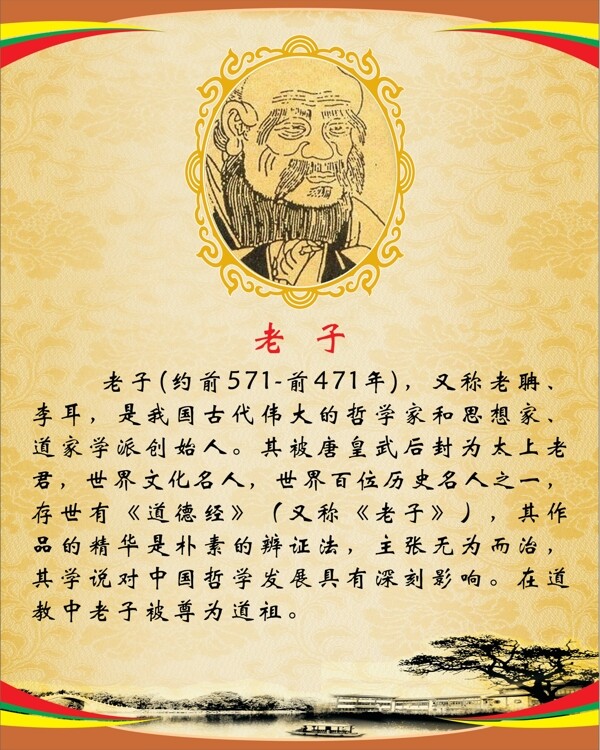 老子
老子(约前571-前471年)，又称老聃、
李耳，是我国古代伟大的哲学家和思想家、
道家学派创始人。其被唐皇武后封为太上老
君，世界文化名人，世界百位历史名人之一，
存世有《道德经》（又称《老子》），其作
品的精华是朴素的辨证法，主张无为而治，
其学说对中国哲学发展具有深刻影响。在道
教中老子被尊为道祖。